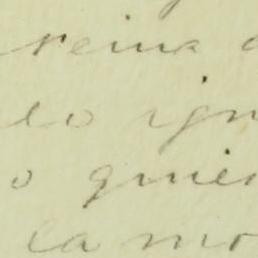 reina
lo ign
o quien
la mo